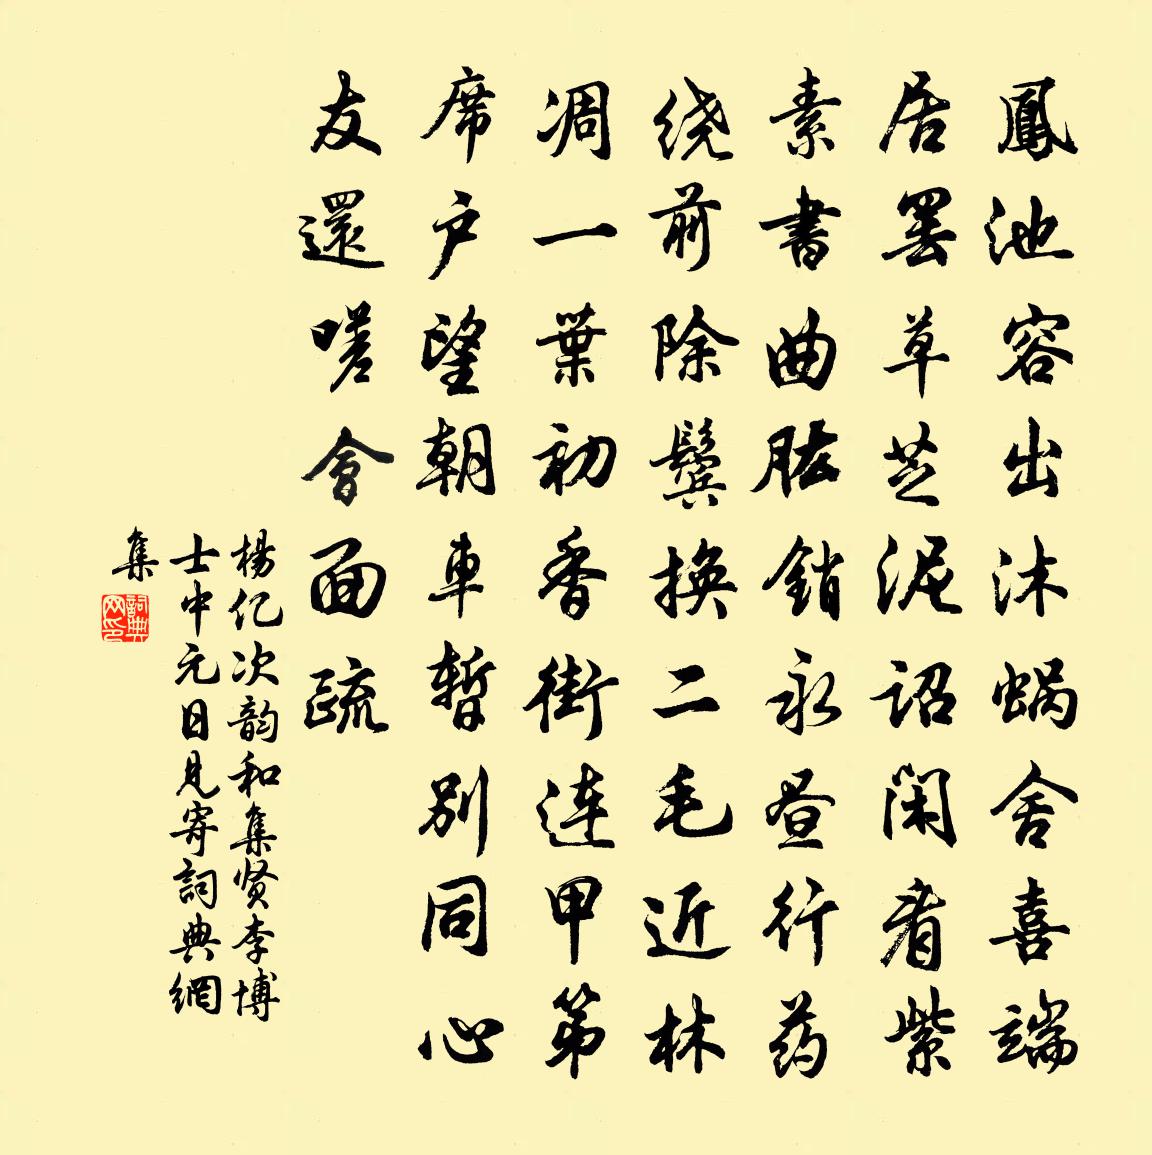 鳳池容出沐蜗舍喜端
居罢草芝泥诏闲看紫
素書曲肱銷永昼行药
绕前除鬓换二毛近林
凋一葉初香街连甲第
席户望朝車暫別同心
友還嗟會面疏
楊亿次韵和集贤李博
士中元日見寄詞典網
集
詞典网印